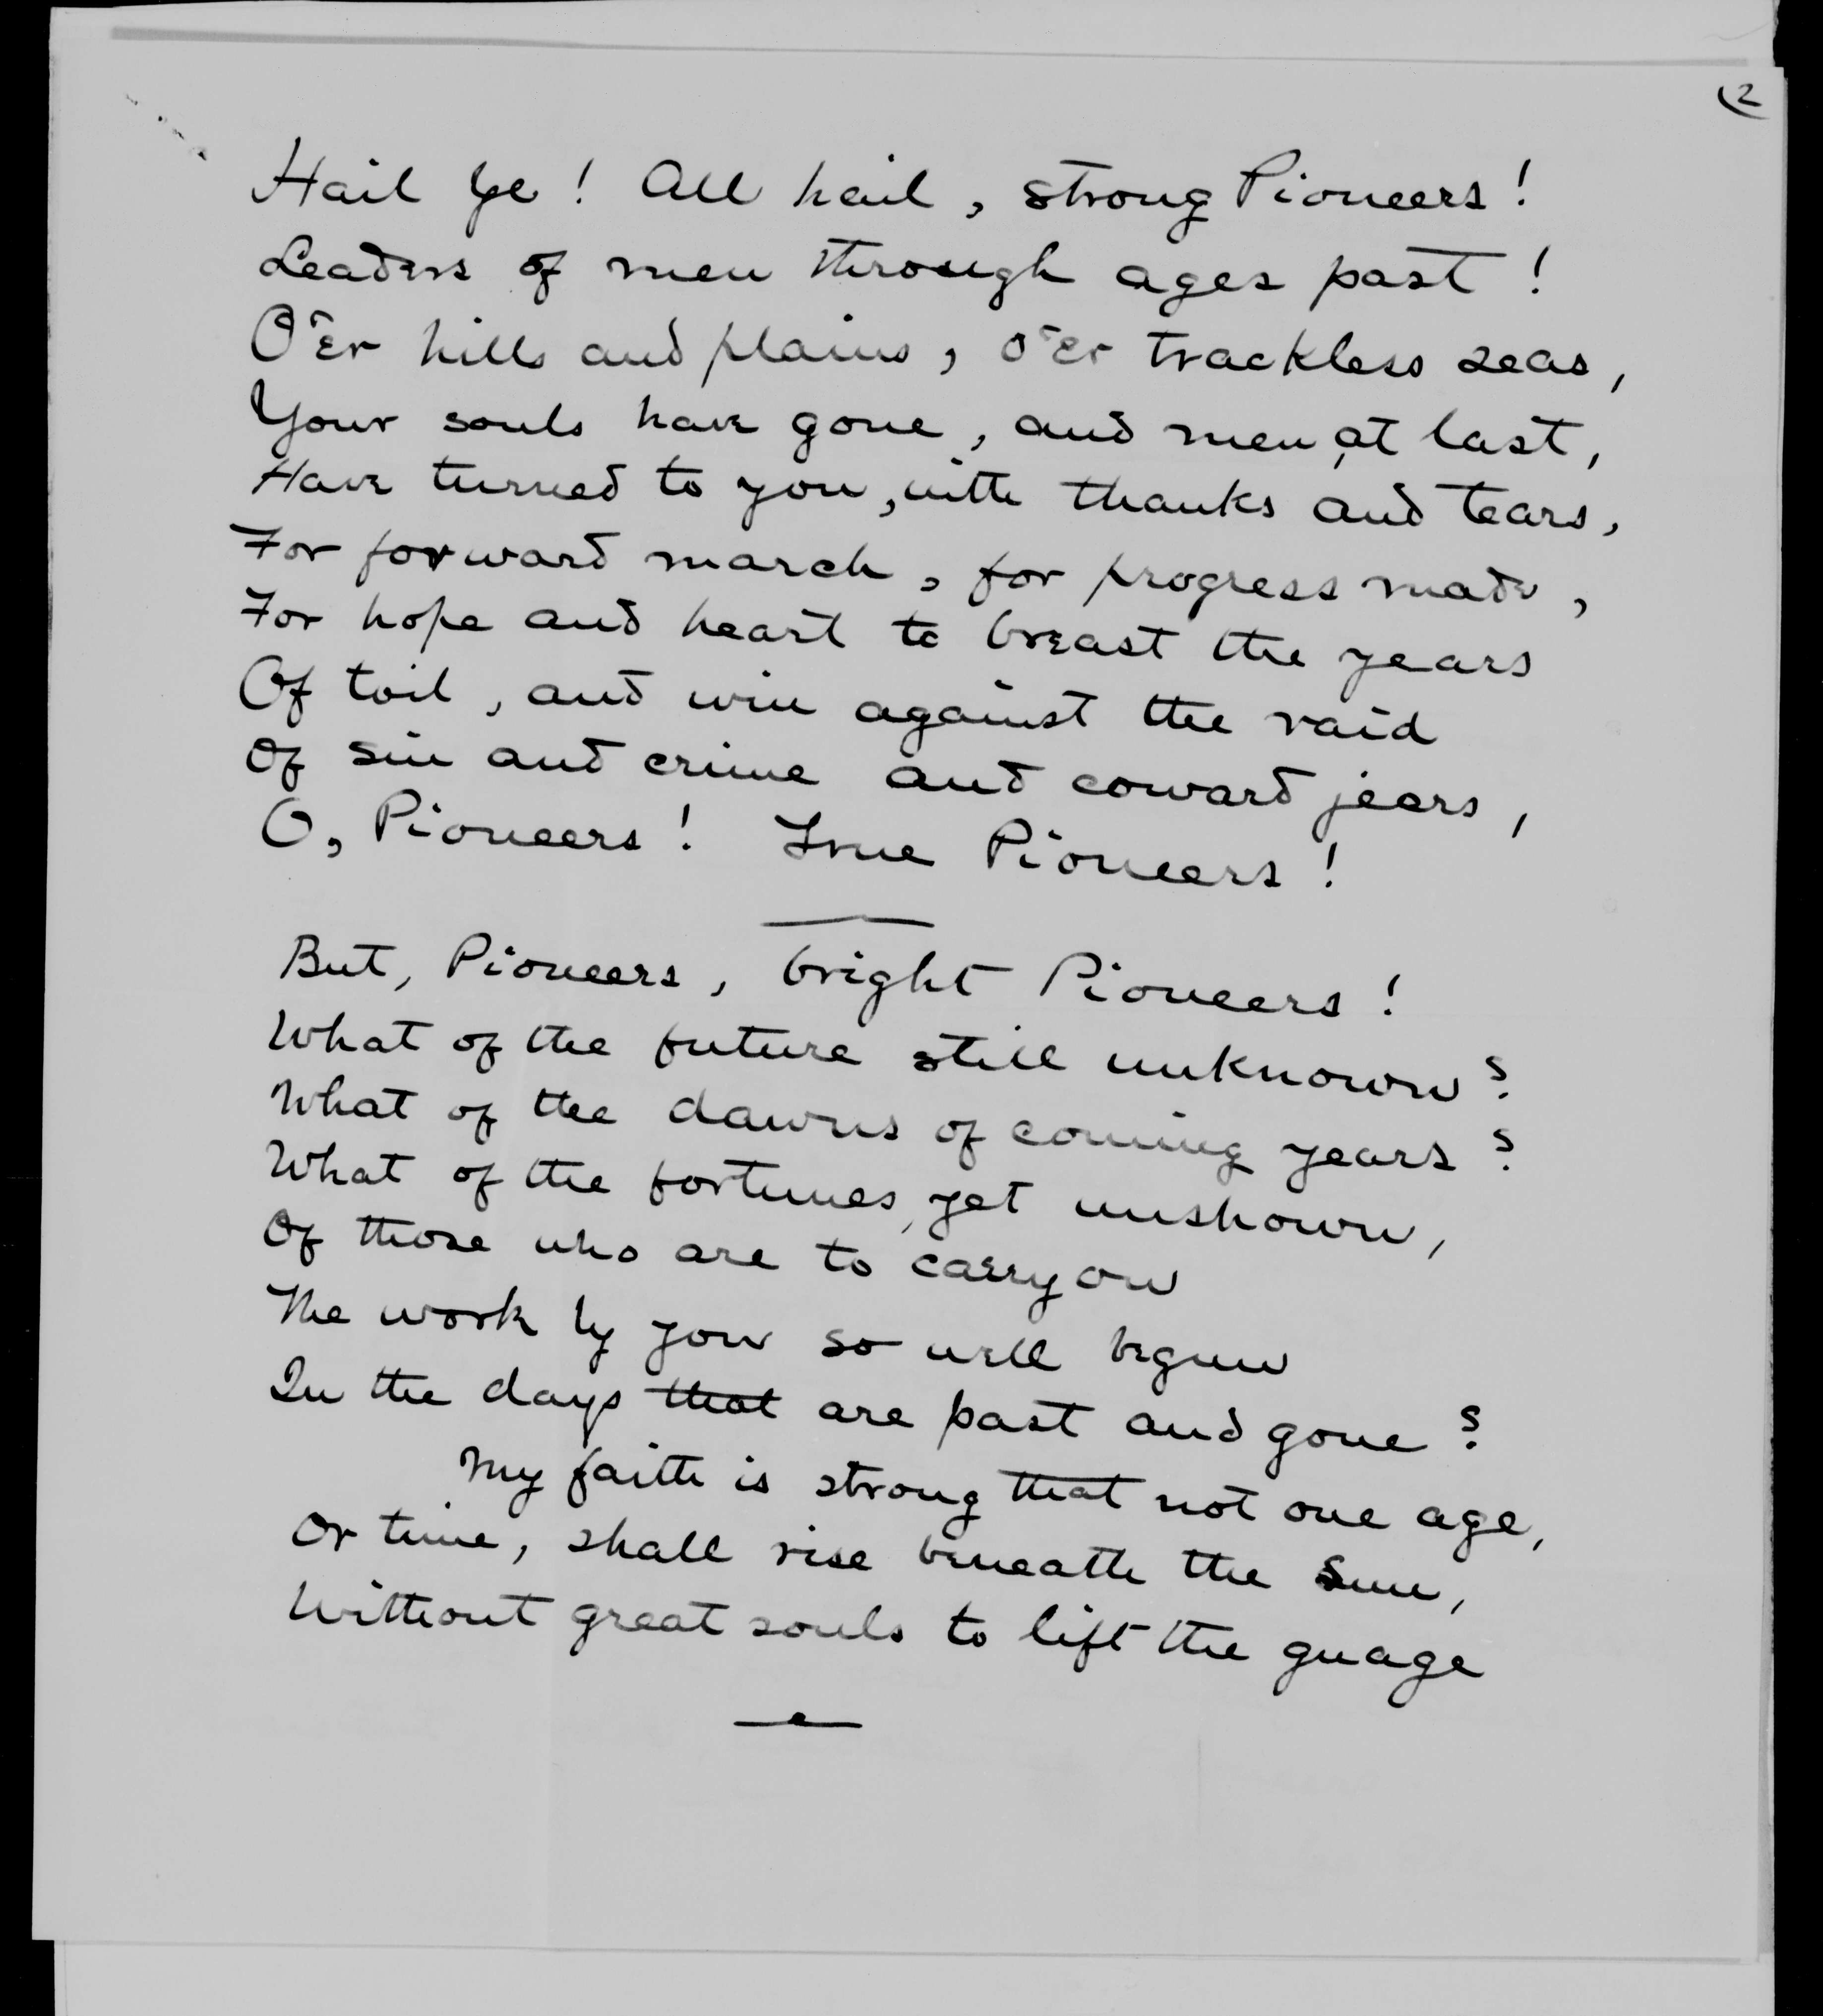 (2
Hail Ye! All hail, strong Pioneers!
Leaders of men through ages past!
O'er hills and plains, o'er trackless seas,
Your souls have gone, and men, at last,
Have turned to you, with thanks and tears,
For forward march, for progress made,
For hope and heart to breast the years
Of toil, and win against the raid
Of sin and crime and coward jeers,
O, Pioneers! True Pioneers!
But, Pioneers, bright Pioneers!
What of the future still unknown?
What of the dawns of coming years?
What of the fortunes, yet unshown,
Of those who are to carry on
The work by you so well begun
In the days that are past and gone?
My faith is strong that not one age,
Or time, shall rise beneath the Sun,
Without great souls to lift the guage